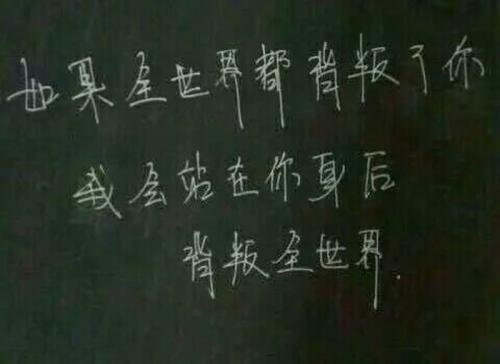 如果全世界都背叛了你
我会站在你身后
背叛全世界.